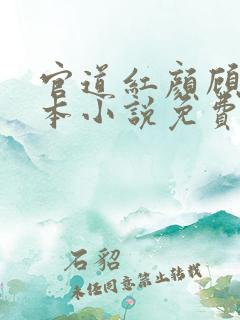 官道红颜顾
本小说免费
石貂
未经同意禁止转载